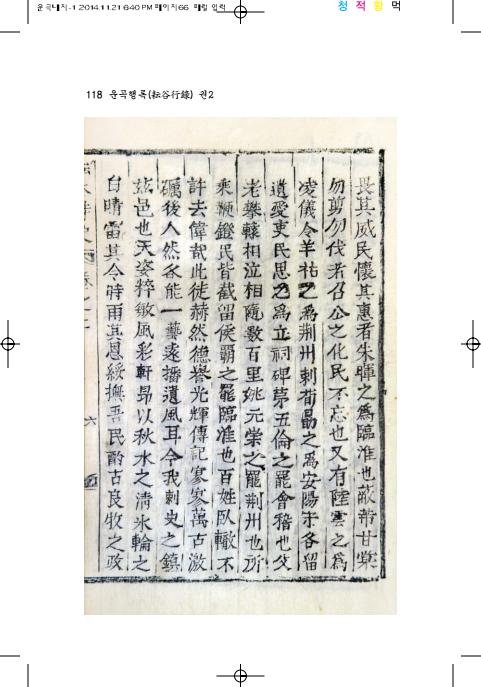 운곡내지-1 2014.11.21 6:40 PM 페이지66 매킬 입력
청 적 황 먹
118 운곡행록(耘谷行錄) 권2
畏其威民懷其惠者朱暉之爲臨淮也蔽芾甘棠
勿剪勿伐者召公之化民不忘也又有陸雲之爲
凌儀令羊祜之爲荊州刺荀勗之爲安陽手各留
遺愛吏民思之爲立祠碑苐五倫之罷會稽也父
老攀轅相泣相隨數百里姚元崇之罷荊州也所
乘鞭鐙民皆截留侯霸之罷臨淮也百姓臥轍不
許去偉哉此徒赫然德譽光輝傳記寥寥萬古激
礪後人然不能一藝遠播遺風耳今我刺史之鎮
玆邑也天姿粹敏風彩軒昂以秋水之淸氷輪之
白晴雷其令時雨其恩綏撫吾民酌古良牧之政
六